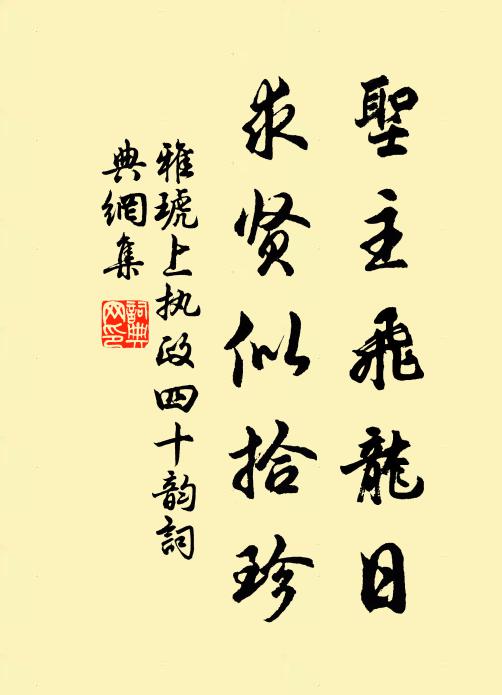 聖主飛龍日
求贤似拾珍
雅琥上执政四十韵詞
典網集
詞典
网印